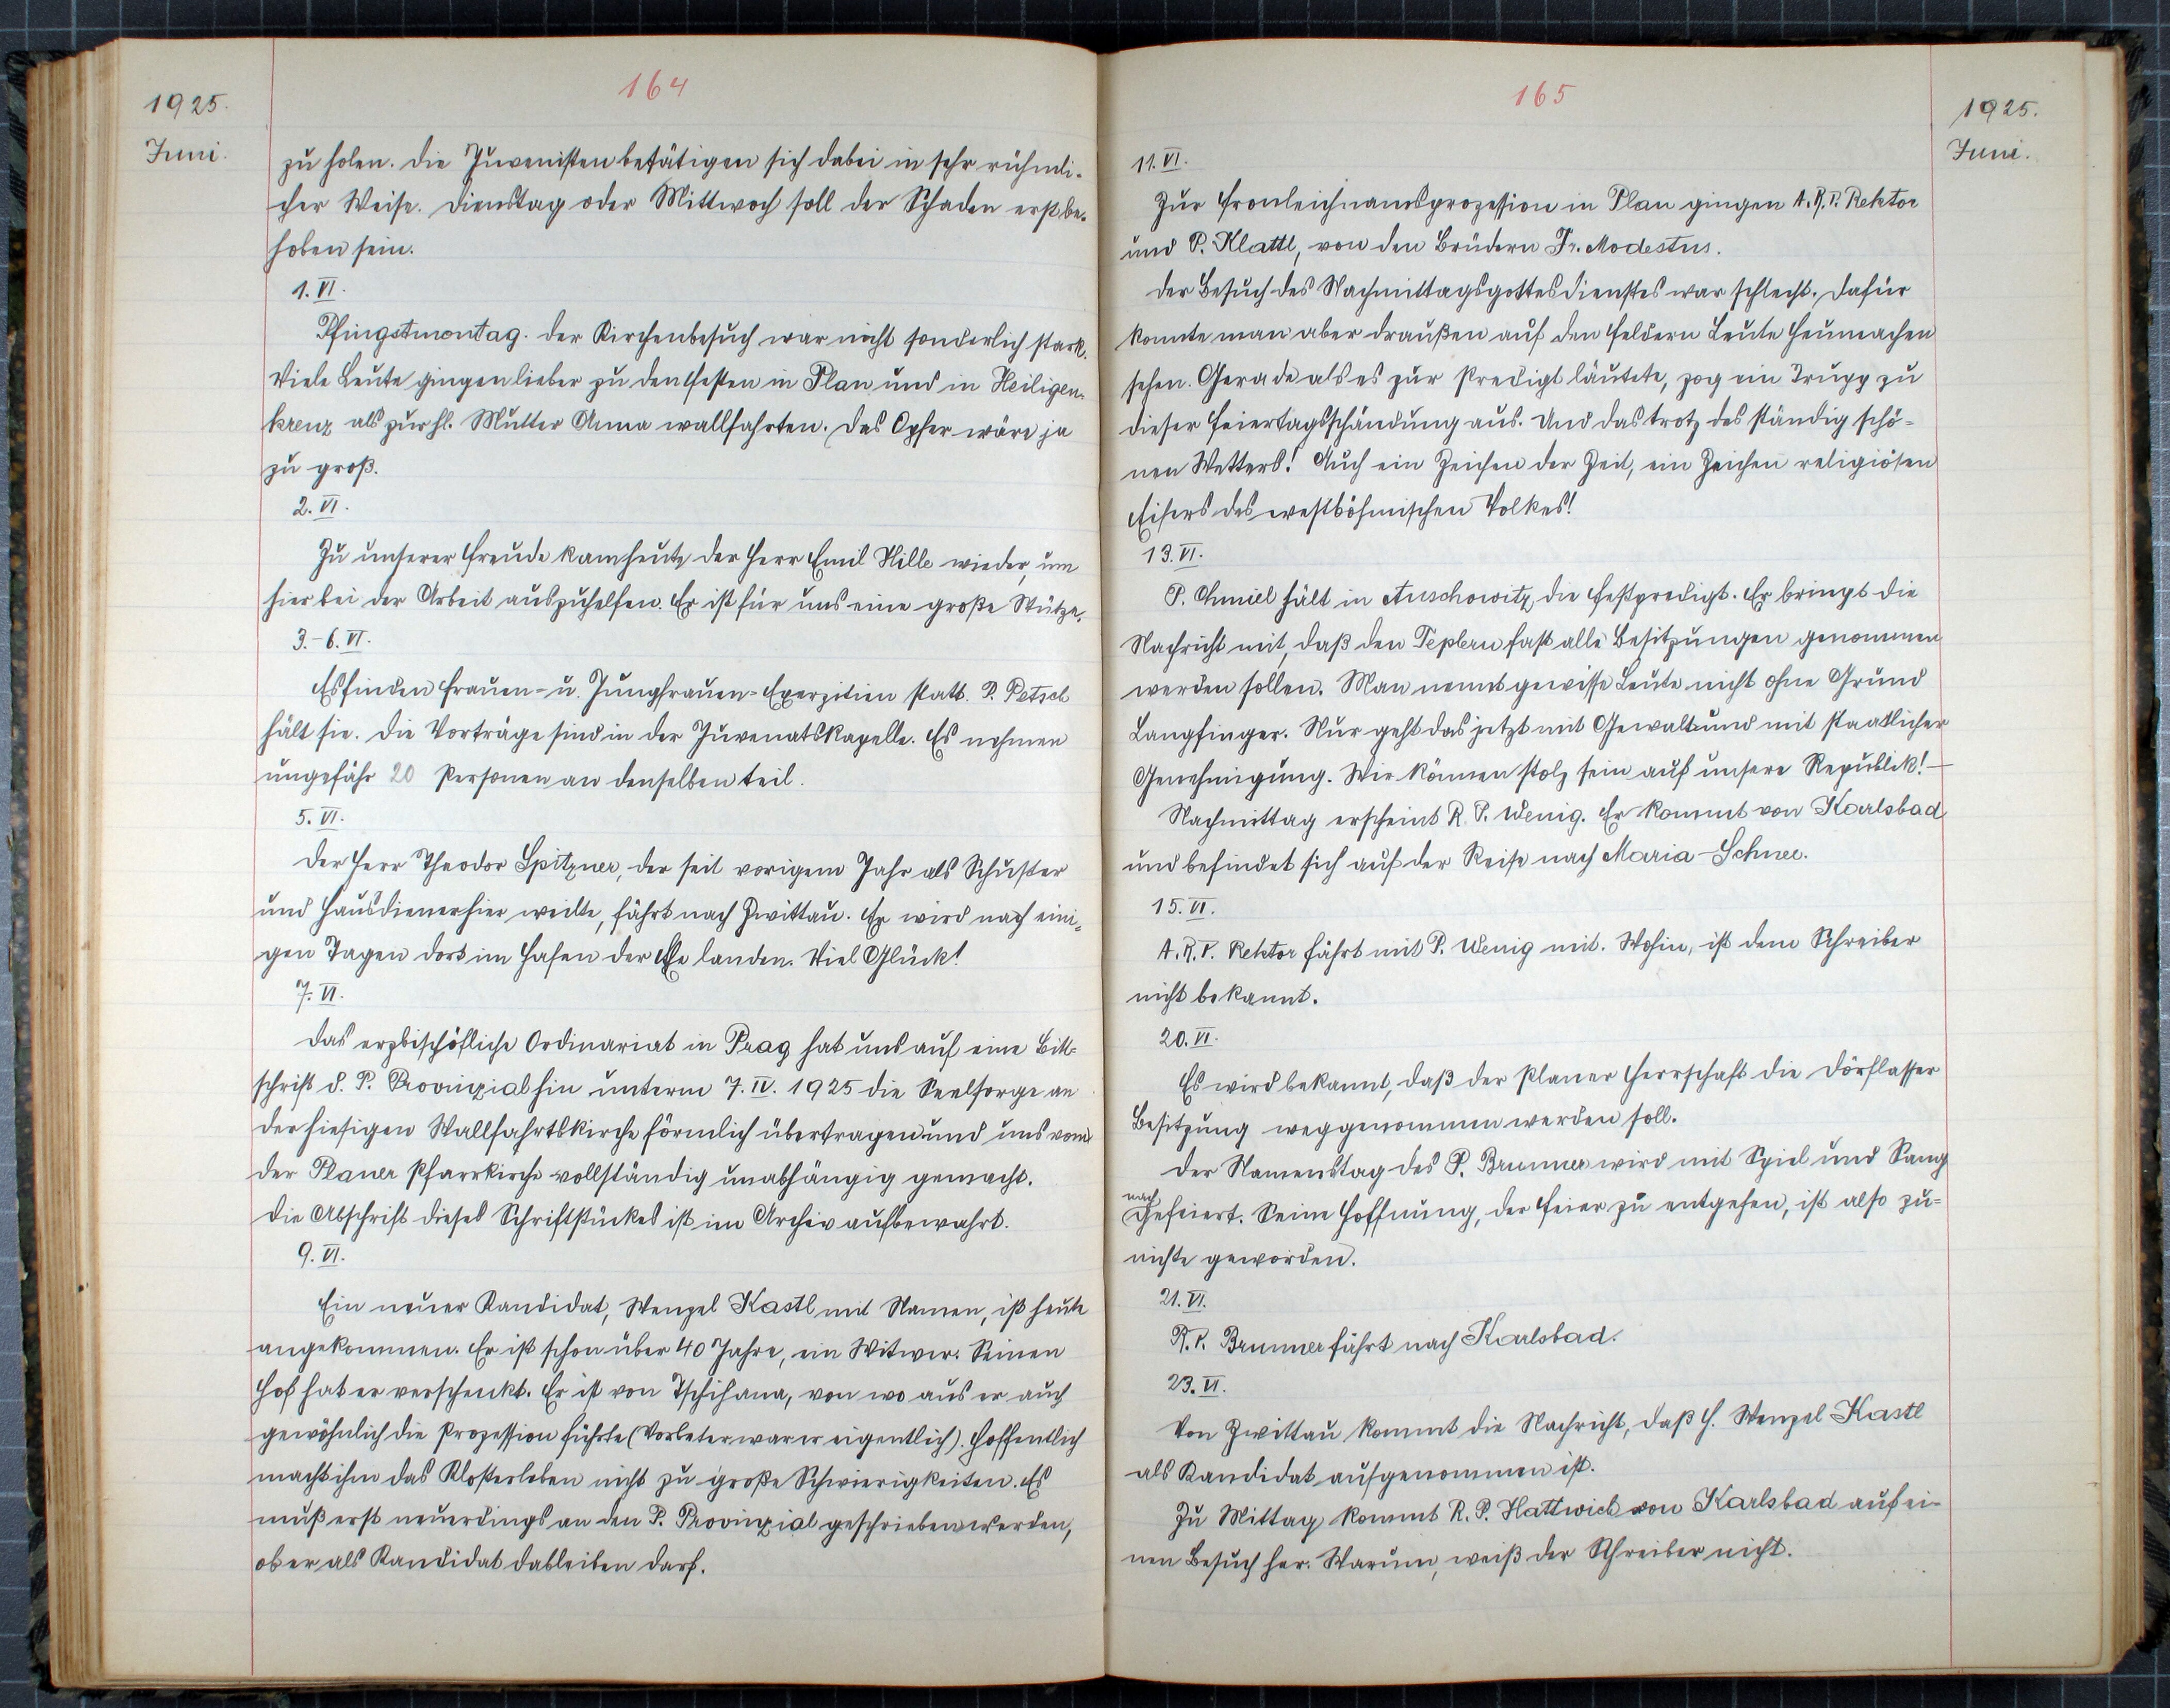 164
1925.
Juni.
zu holen. Die Juvenisten betätigen sich dabei in sehr rühmli-
cher Weise. Dienstag oder Mittwoch soll der Schaden erst be-
hoben sein.
1. VI.
Pfingstmontag. Der Kirchenbesuch war nicht sonderlich stark.
Viele Leute gingen lieber zu den Festen in Plan und in Heiligen-
kreuz als zur hl. Mutter Anna wallfahrten. Das Opfer wäre ja
zu groß.
2. VI.
Zu unserer Freude kam heute der Herr Emil Hille wieder, um
hier bei der Arbeit auszuhelfen. Er ist für uns eine große Stütze.
3.-6. VI.
Es finden Frauen- u. Jungfrauen-Exerzitien statt. P. Petsch
hält sie. Die Vorträge sind in der Juvenatskapelle. Es nehmen
ungefähr 20 Personen an denselben teil.
5. VI.
Der Herr Theodor Spitzner, der seit vorigem Jahr als Schuster
und Hausdiener hier weilte, fährt nach Zwittau. Er wird nach eini-
gen Tagen dort im Hafen der Ehe landen. Viel Glück!
7. VI.
Das erzbischöfliche Ordinariat in Prag hat uns auf eine Bitt-
schrift d. P. Provinzial hin unterm 7. IV. 1925 die Seelsorge an
der hiesigen Wallfahrtskirche förmlich übertragen und uns von
der Planer Pfarrkirche vollständig unabhängig gemacht.
Die Abschrift dieses Schriftstückes ist im Archiv aufbewahrt.
9. VI.
Ein neuer Kandidat, Wenzel Kastl mit Namen, ist heute
angekommen. Er ist schon über 40 Jahre, ein Witwer. Seinen
Hof hat er verschenkt. Er ist von Tschihana, von wo aus er auch
gewöhnlich die Prozession führte (Vorbeter war er eigentlich). Hoffentlich
macht ihm das Klosterleben nicht zu große Schwierigkeiten. Es
muß erst neuerdings an den P. Provinzial geschrieben werden,
ob er als Kandidat dableiben darf.
165
1925.
Juni.
11. VI.
Zur Fronleichnamsprozession in Plan gingen A. R. P. Rektor
und P. Klattl, von den Brüdern Fr. Modestus.
Der Besuch des Nachmittagsgottesdienstes war schlecht. Dafür
konnte man aber draußen auf den Feldern Leute Heumachen
sehen. Gerade als es zur Predigt läutete, zog ein Trupp zu
dieser Feiertagsschändung aus. Und das trotz des ständig schö-
nen Wetters! Auch ein Zeichen der Zeit, ein Zeichen religiösen
Eifers des westböhmischen Volkes!
13. VI.
P. Chmiel hält in Auschowitz die Festpredigt. Er bringt die
Nachricht mit, daß den Teplern fast alle Besitzungen genommen
werden sollen. Man nennt gewisse Leute nicht ohne Grund
Langfinger. Nur geht das jetzt mit Gewalt und mit staatlicher
Genehmigung. Wir können stolz sein auf unsere Republik! —
Nachmittag erscheint R. P. Wenig. Er kommt von Karlsbad
und befindet sich auf der Reise nach Maria-Schnee.
15. VI.
A. R. P. Rektor fährt mit P. Wenig mit. Wohin, ist dem Schreiber
nicht bekannt.
20. VI.
Es wird bekannt, daß der Planer Herrschaft die Dörflasser
Besitzung weggenommen werden soll.
Der Namenstag des P. Brunner wird mit Spiel und Sang
nach
gefeiert. Seine Hoffnung, der Feier zu entgehen, ist also zu-
nichte geworden.
21. VI.
R. P. Brunner fährt nach Karlsbad.
23. VI.
Von Zwittau kommt die Nachricht, daß H. Wenzel Kastl
als Kandidat aufgenommen ist.
Zu Mittag kommt R. P. Hattwich von Karlsbad auf ei-
nen Besuch her. Warum, weiß der Schreiber nicht.